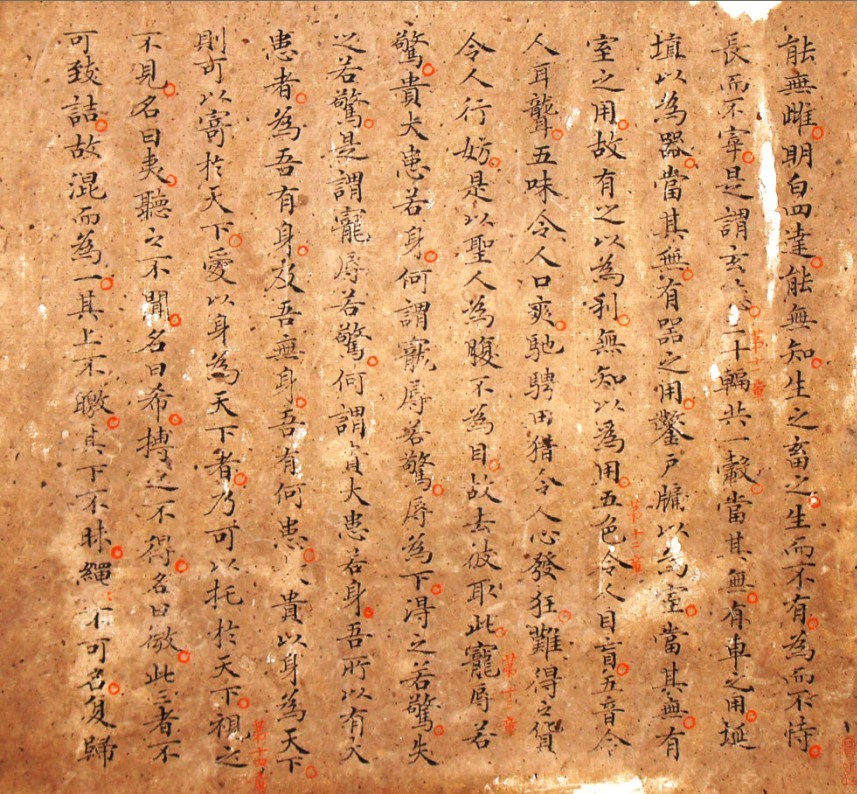 能無雌明白四達能無知生之畜之生而不有為而不恃
長而不宰是謂玄二十輻共一轂當其無有車之用埏
第十一章
埴以為器當其無有器之用鑿戶牖以為室當其無有
室之用故有之以為利無知以為用五色令人目盲五音令
第十二章
人耳聾五味令人口爽馳騁田猎令人心發狂難得之貨
令人行妨是以聖人為腹不為目故去彼取此寵辱若
第十三章
驚貴大患若身何謂寵辱若驚辱為下得之若驚失
之若驚是謂寵辱若驚何謂貴大患若身吾所以有大
患者為吾有身及吾無身吾有何患貴以身為天下
則可以寄於天下愛以身為天下者乃可以托於天下視之
第十四章
不見名曰夷聽之不聞名曰希搏之不得名曰微此三者不
可致詰故混而為一其上不皦其下不昧繩不可名复歸